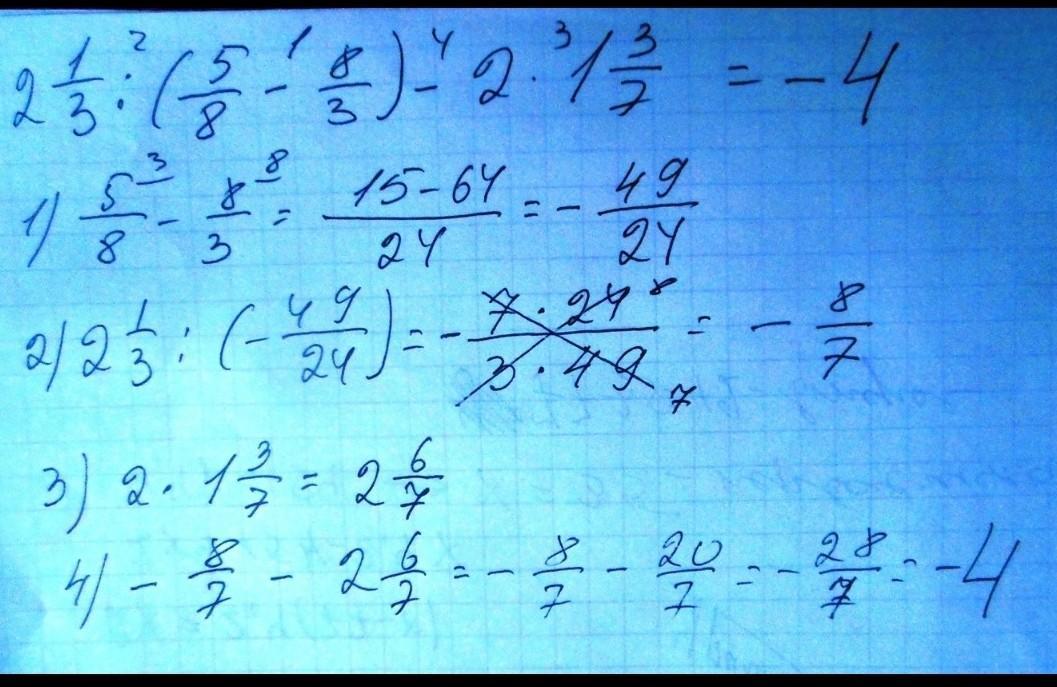 2 1/3 :² (5/8 -¹ 8/3) -⁴ 2 ·³ 1 3/7 = -4
1) 5/8 ³ - 8/3 ⁸ = (15-64)/24 = - 49/24
2) 2 1/3 : (- 49/24) = - (7 · 24 8)/(3 · 49 7) = - 8/7
3) 2 · 1 3/7 = 2 6/7
4) - 8/7 - 2 6/7 = - 8/7 - 20/7 = - 28/7 = -4